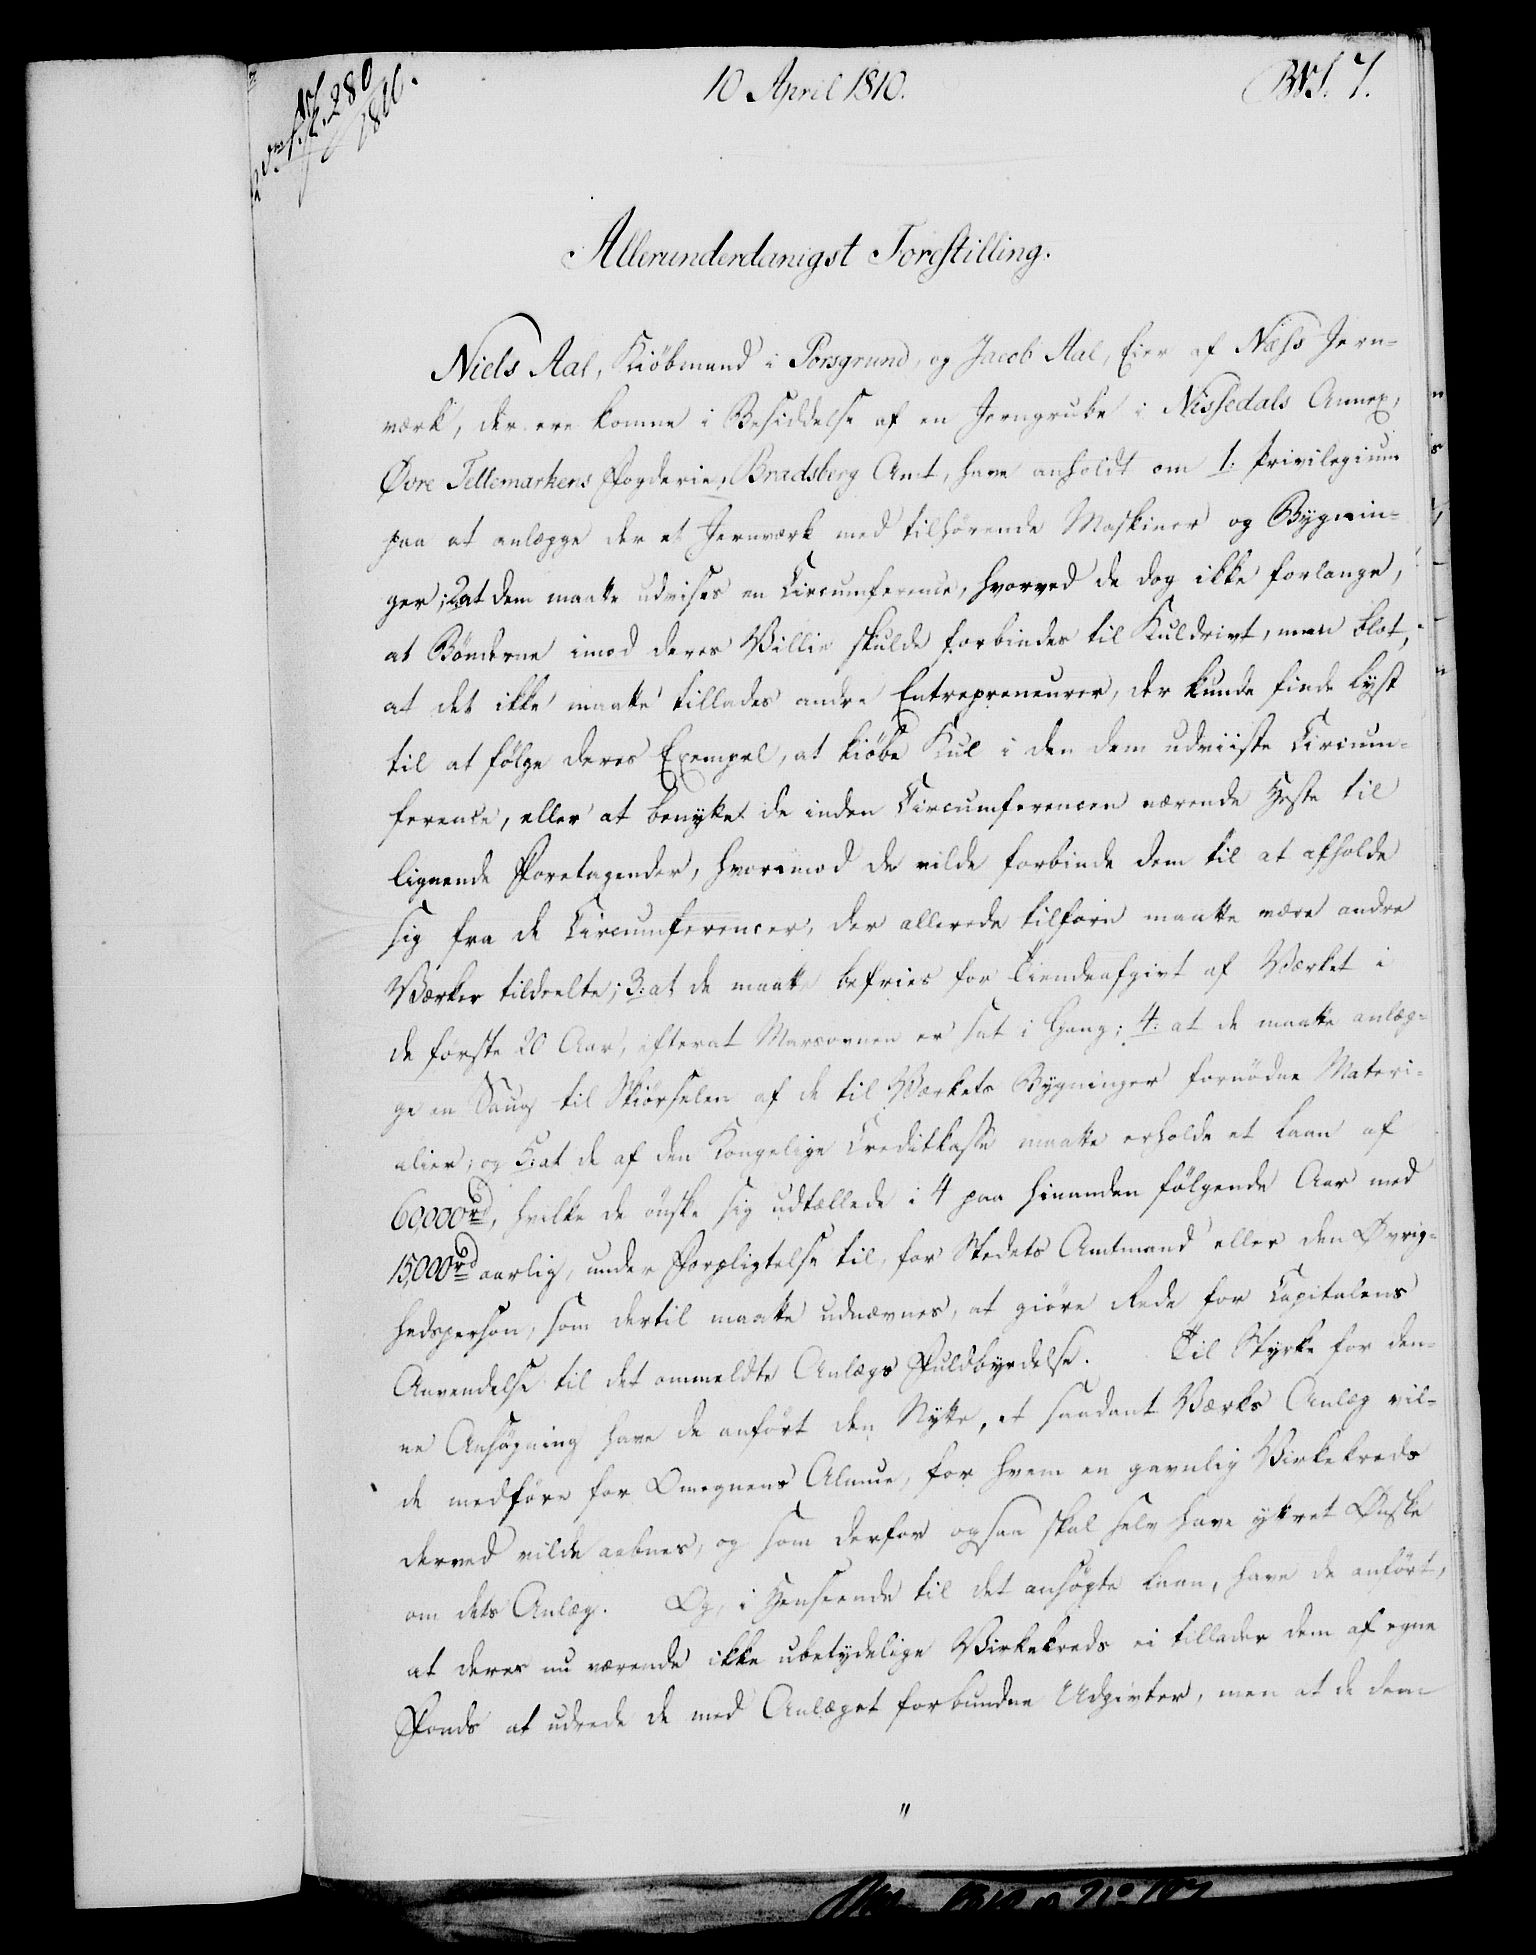 10 April 1810.
Allerunderdanigst Forestilling.
Niels Aal, Kiöbmand i Porsgrund, og Jacob Aal, Eier af Næss Jern-
værk, der ere komne i Besiddelse af en Jerngrube i Nissedals Annex,
Øvre Tellemarkens Fogderie, Bradsberg Amt, have anholdt om 1: Privilegium
paa at anlægge der et Jernværk med tilhörende Maskiner og Bygnin-
ger; 2: at dem maatte udvises en Circumference, hvorved de dog ikke forlange,
at Bönderne imod deres Villie skulde forbindes til Kuldrivt, men blot,
at det ikke maatte tillades andre Entrepreneurer, der kunde finde Lyst
til at fölge deres Exempel, at kiöbe Kul i den dem udviiste Circum-
ference, eller at benytte de inden Circumferencen værende Heste til
lignende Foretagender, hvorimod de vilde forbinde dem til at afholde
sig fra de Circumferencer, der allerede tilforn maatte være andre
Værker tildeelte; 3: at de maatte befries for Tiendeafgivt af Værket i
de förste 20 Aar, efterat Masovnen er sat i Gang; 4: at de maatte anlæg-
ge en Saug til Skiörselen af de til Værkets Bygninger fornödne Materi-
alier; og 5: at de af den Kongelige Creditkasse maatte erholde et Laan af
60,000 rd, hvilke de önske sig udtællede i 4 paa hinanden fölgende Aar med
15,000 rd aarlig, under Forpligtelse til, for Stedets Amtmand eller den Øvrig-
hedsperson, som dertil maatte udnævnes, at giöre Rede for Capitalens
Anvendelse til det ommeldte Anlægs Fuldbyrdelse. Til Styrke for den-
ne Ansögning have de anfört den Nytte, et saadant Værks Anlæg vil-
de medföre for Omegnens Almue, for hvem en gavnlig Virkekreds
derved vilde aabnes, og som derfor ogsaa skal selv have yttret Ønske
om dets Anlæg. Og, i Henseende til det ansögte Laan, have de anfört,
at deres nu værende ikke ubetydelige Virkekreds ei tillader dem af egne
Fonds at udrede de med Anlæget forbundne Udgivter, men at de dem
"